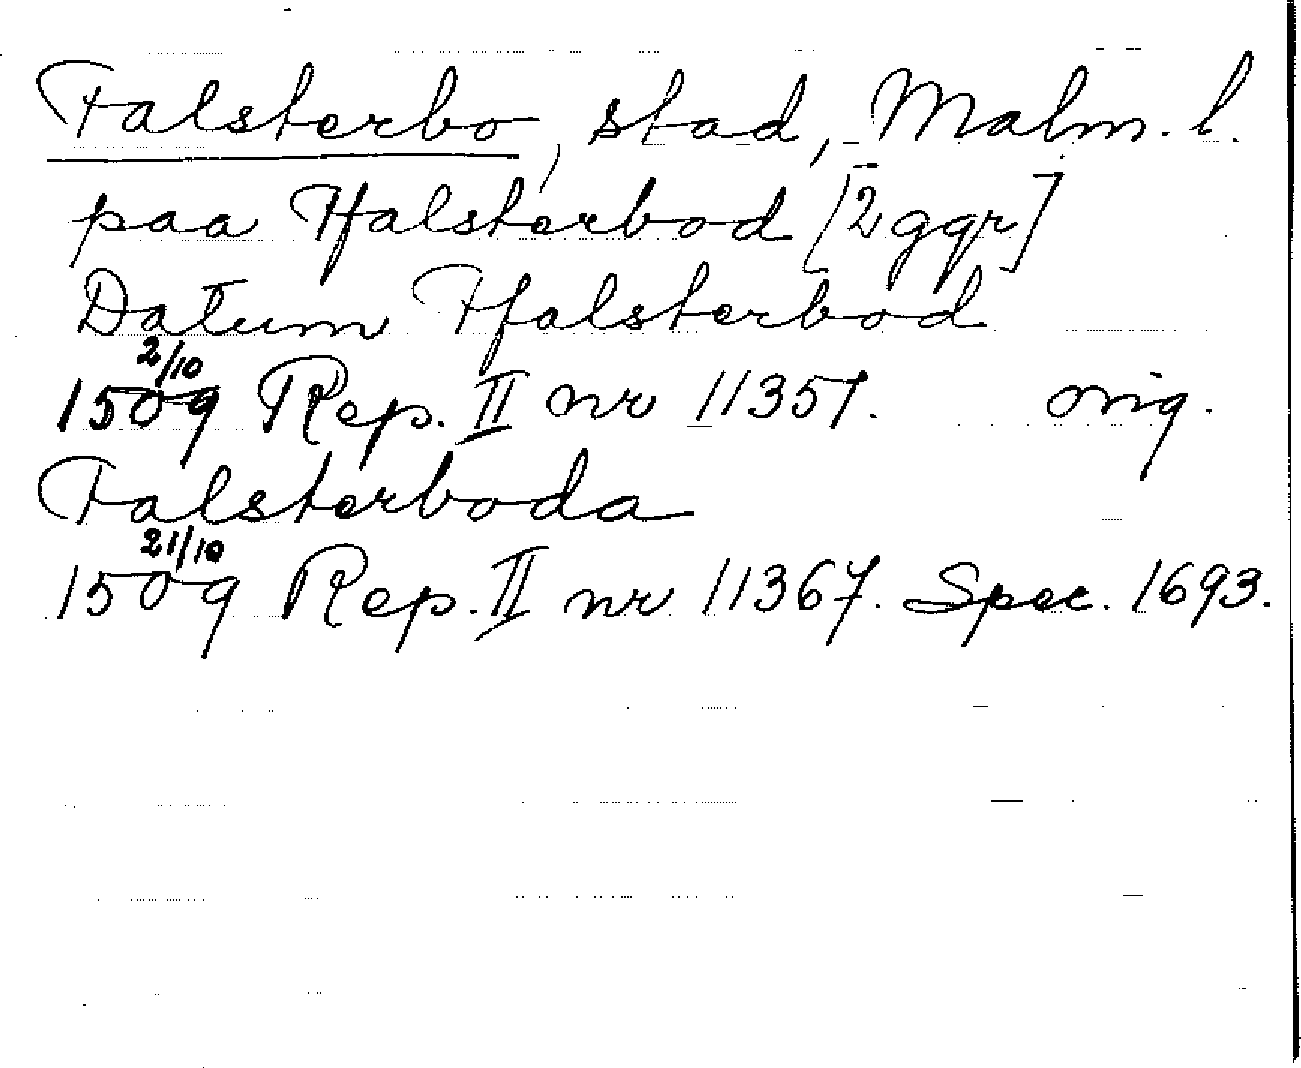 Falsterbo, stad, Malm. l.
paa Ffalsterbod [2 ggr]
Datum Ffalsterbod
2/10
1509 Rep. II nr 11357. orig.
Falsterboda
21/10
1509 Rep. II nr 11367. Spec. 1693.